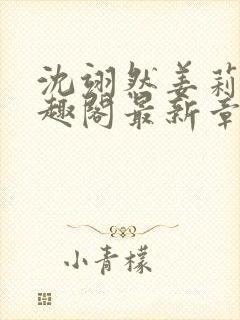 沈翊然姜莉
趣阁最新章
小青檬